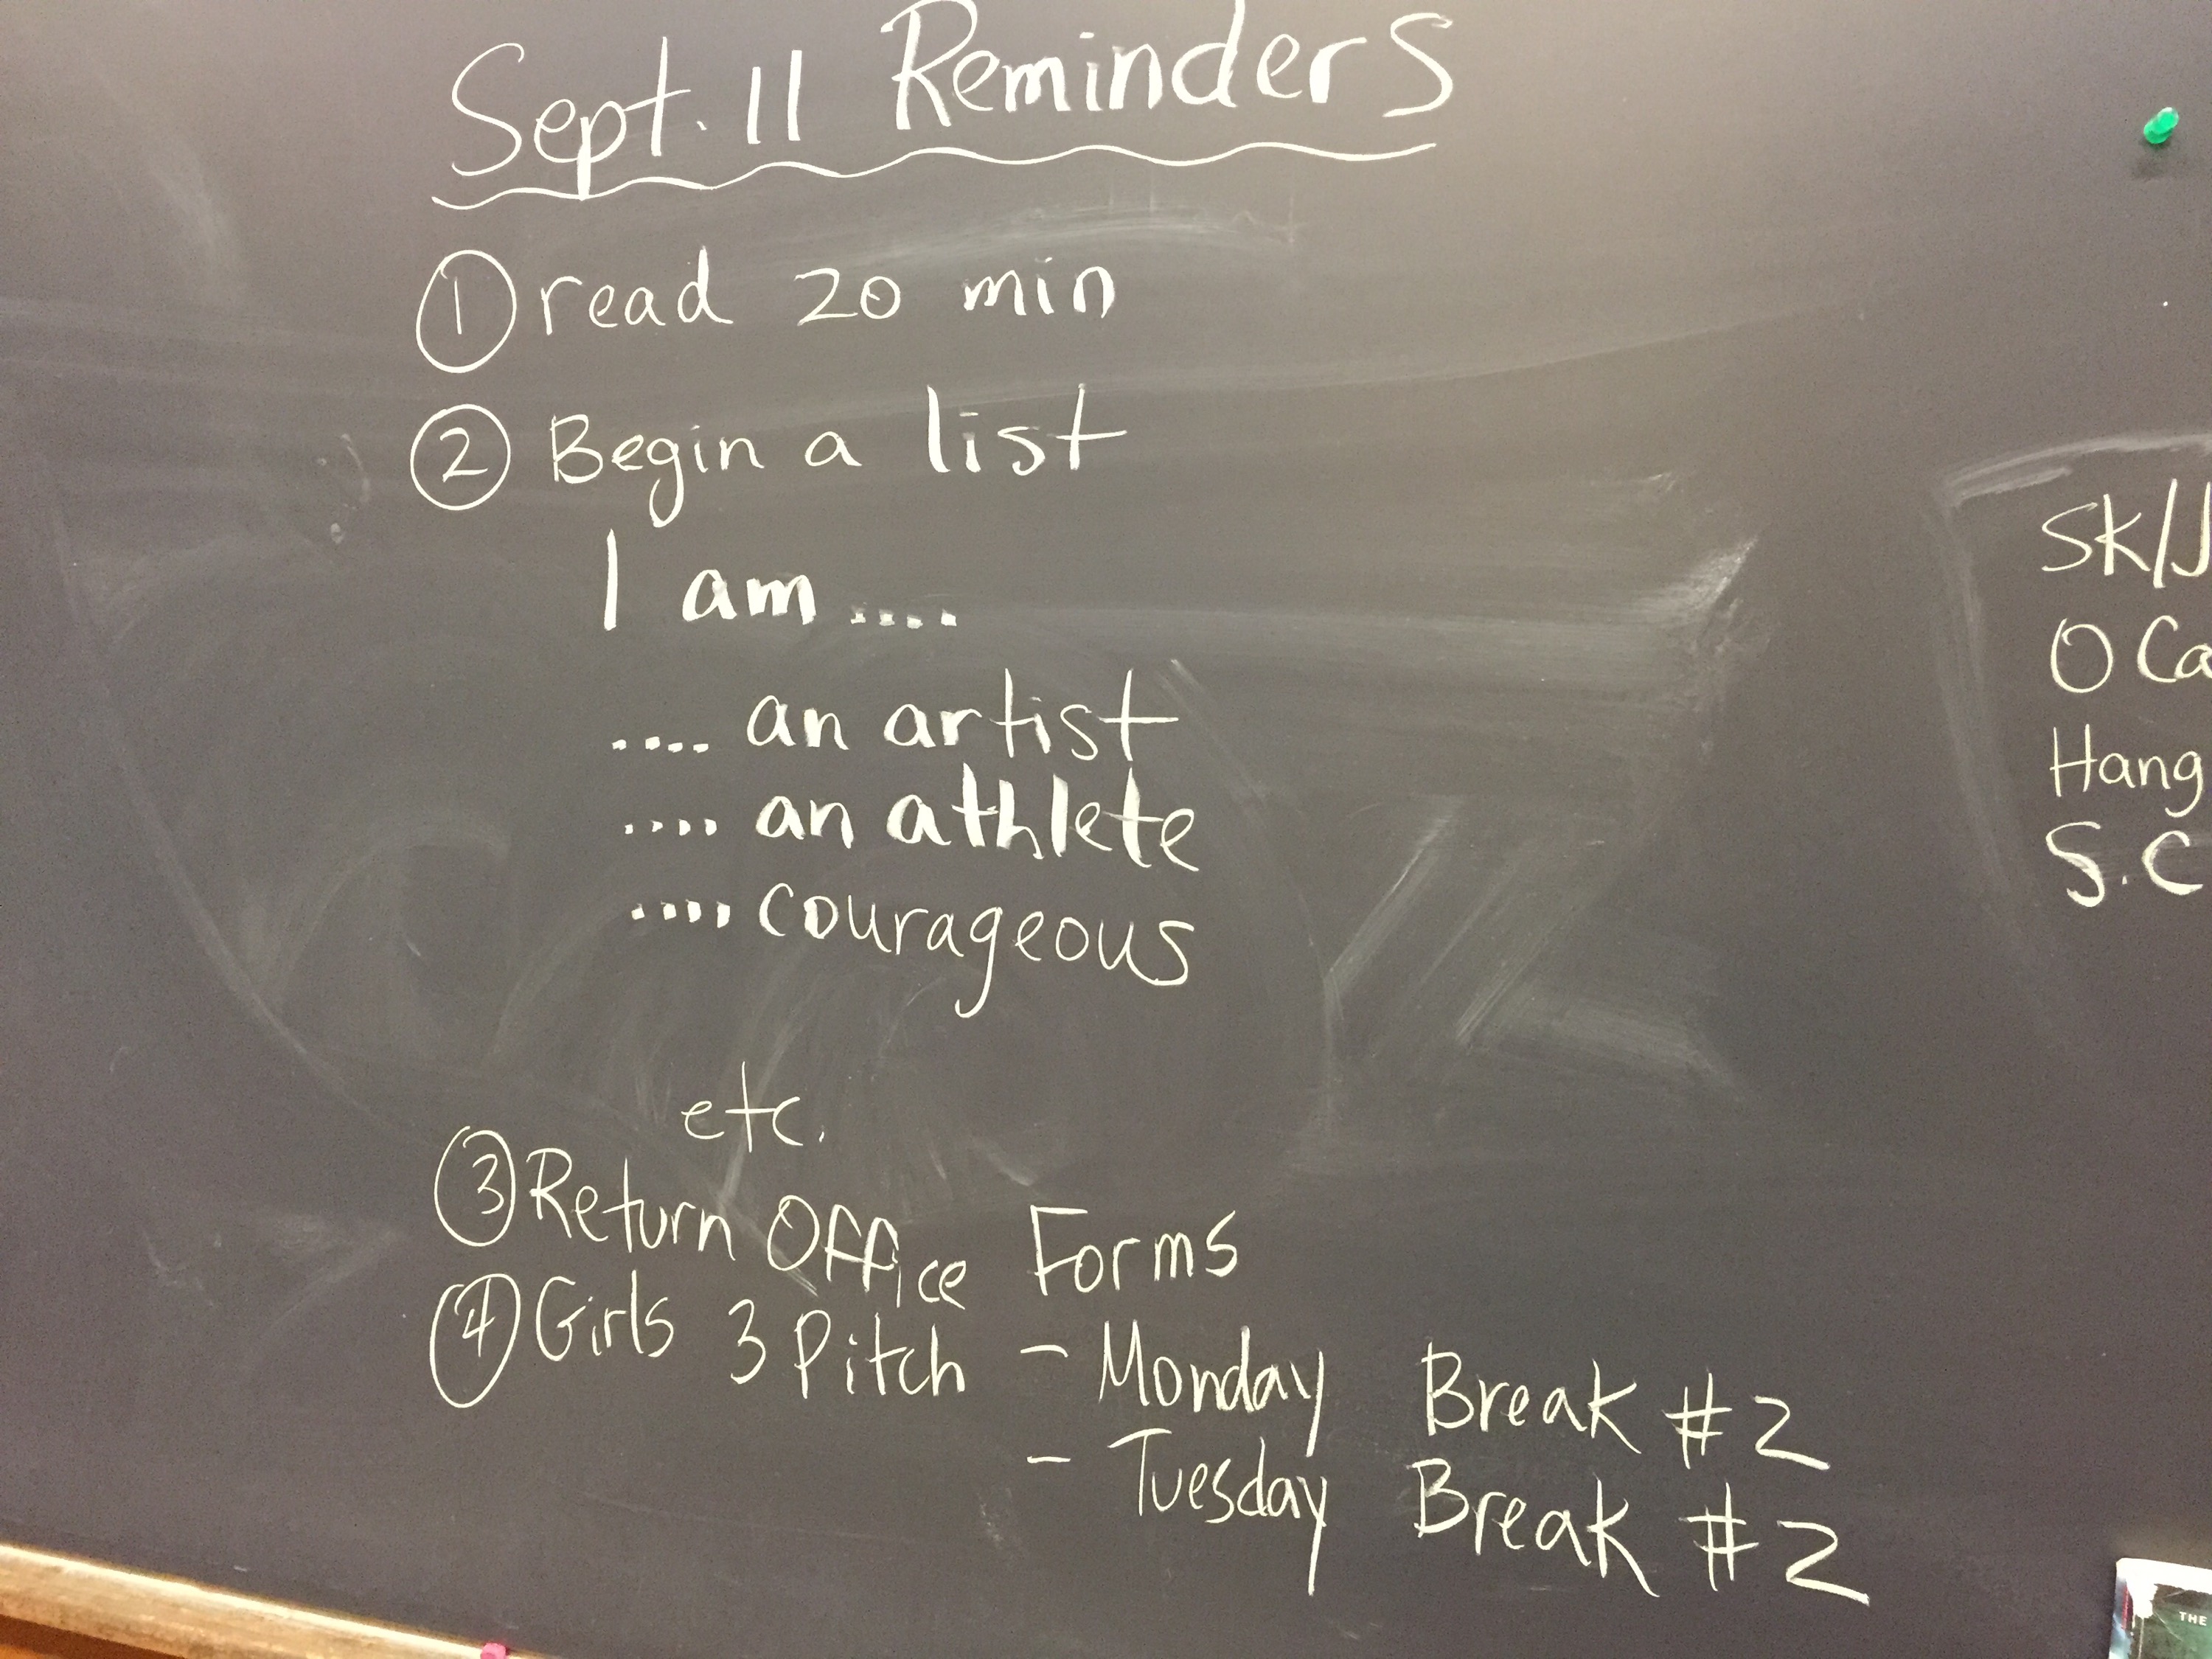 Sept. 11 Reminders
① read 20 min
② Begin a list
I am ....
.... an artist
.... an athlete
.... courageous
etc.
③ Return Office Forms
④ Girls 3 Pitch - Monday Break #2
- Tuesday Break #2
SK/J
O Ca
Hang
S.C
THE